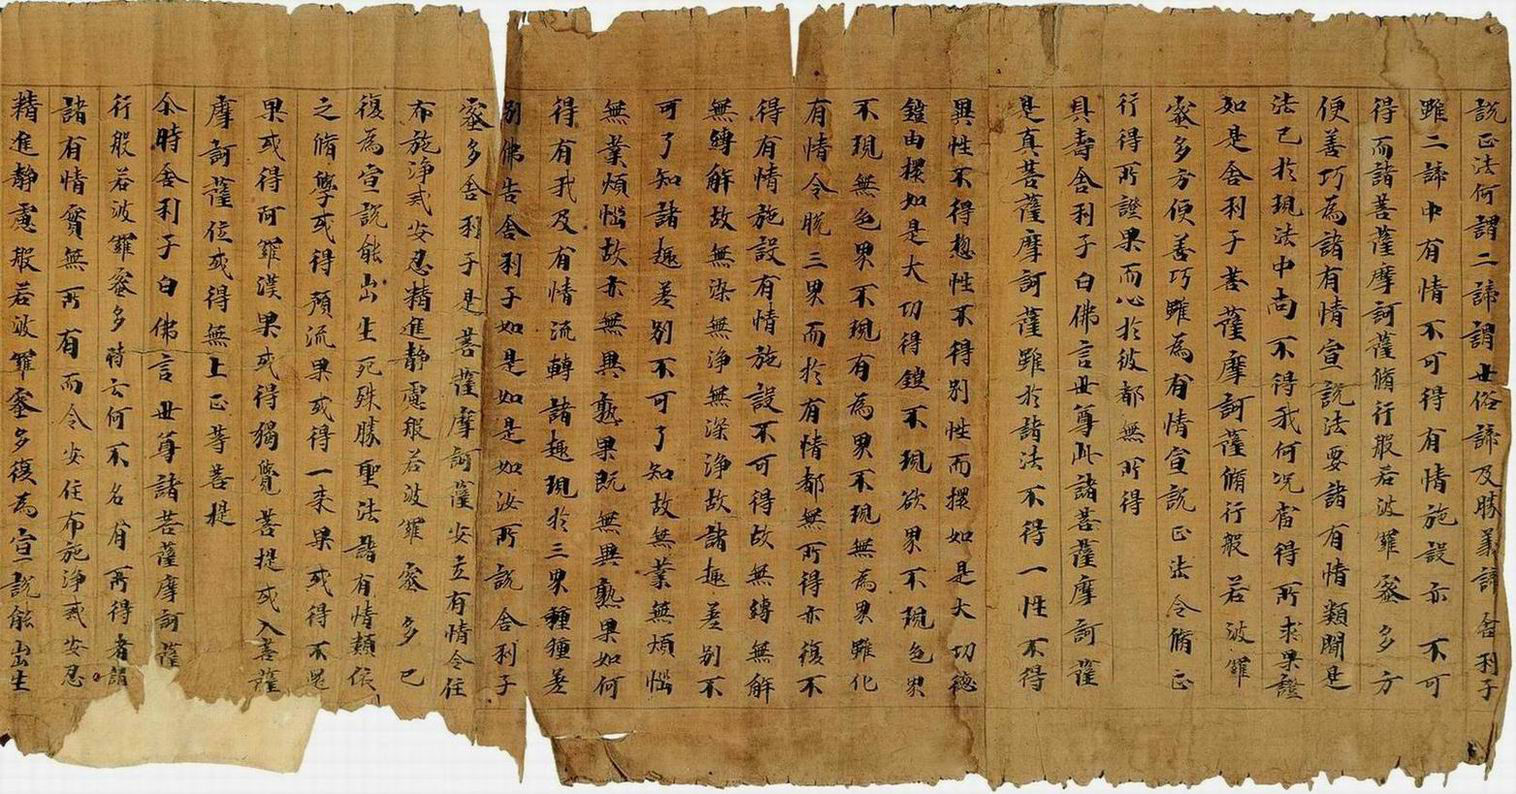 說正法何謂二諦謂世俗諦及勝義諦舍利子
雖二諦中有情不可得有情施設亦不可
得而諸菩薩摩訶薩脩行般若波羅蜜多方
便善巧為諸有情宣說法要諸有情類聞是
法已於現法中尚不得我何況當得所求果證
如是舍利子菩薩摩訶薩脩行般若波羅
蜜多方便善巧雖為有情宣說正法令脩正
行得所證果而心於彼都無所得
具壽舍利子白佛言世尊此諸菩薩摩訶薩
是真菩薩摩訶薩雖於諸法不得一性不得
異性不得惣性不得別性而擐如是大功德
鎧由擐如是大功德鎧不現欲界不現色界
不現無色界不現有為界不現無為界雖化
有情令脫三界而於有情都無所得亦復不
得有情施設有情施設不可得故無縛無解
無縛解故無染無淨無染淨故諸趣差別不
可了知諸趣差別不可了知故無業無煩惱
無業煩惱故亦無異熟果既無異熟果如何
得有我及有情流轉諸趣現於三界種種差
別佛告舍利子如是如是如汝所說舍利子
蜜多舍利子是菩薩摩訶薩安立有情令住
布施淨戒安忍精進靜慮般若波羅蜜多已
復為宣說能出生死殊勝聖法諸有情類依
之脩學或得預流果或得一来果或得不還
果或得阿羅漢果或得獨覺菩提或入菩薩
摩訶薩位或得無上正等菩提
尒時舍利子白佛言世尊諸菩薩摩訶薩
行般若波羅蜜多時云何不名有所得者諸
諸有情實無所有而令安住布施淨戒安忍
精進靜慮般若波羅蜜多復為宣說能出生